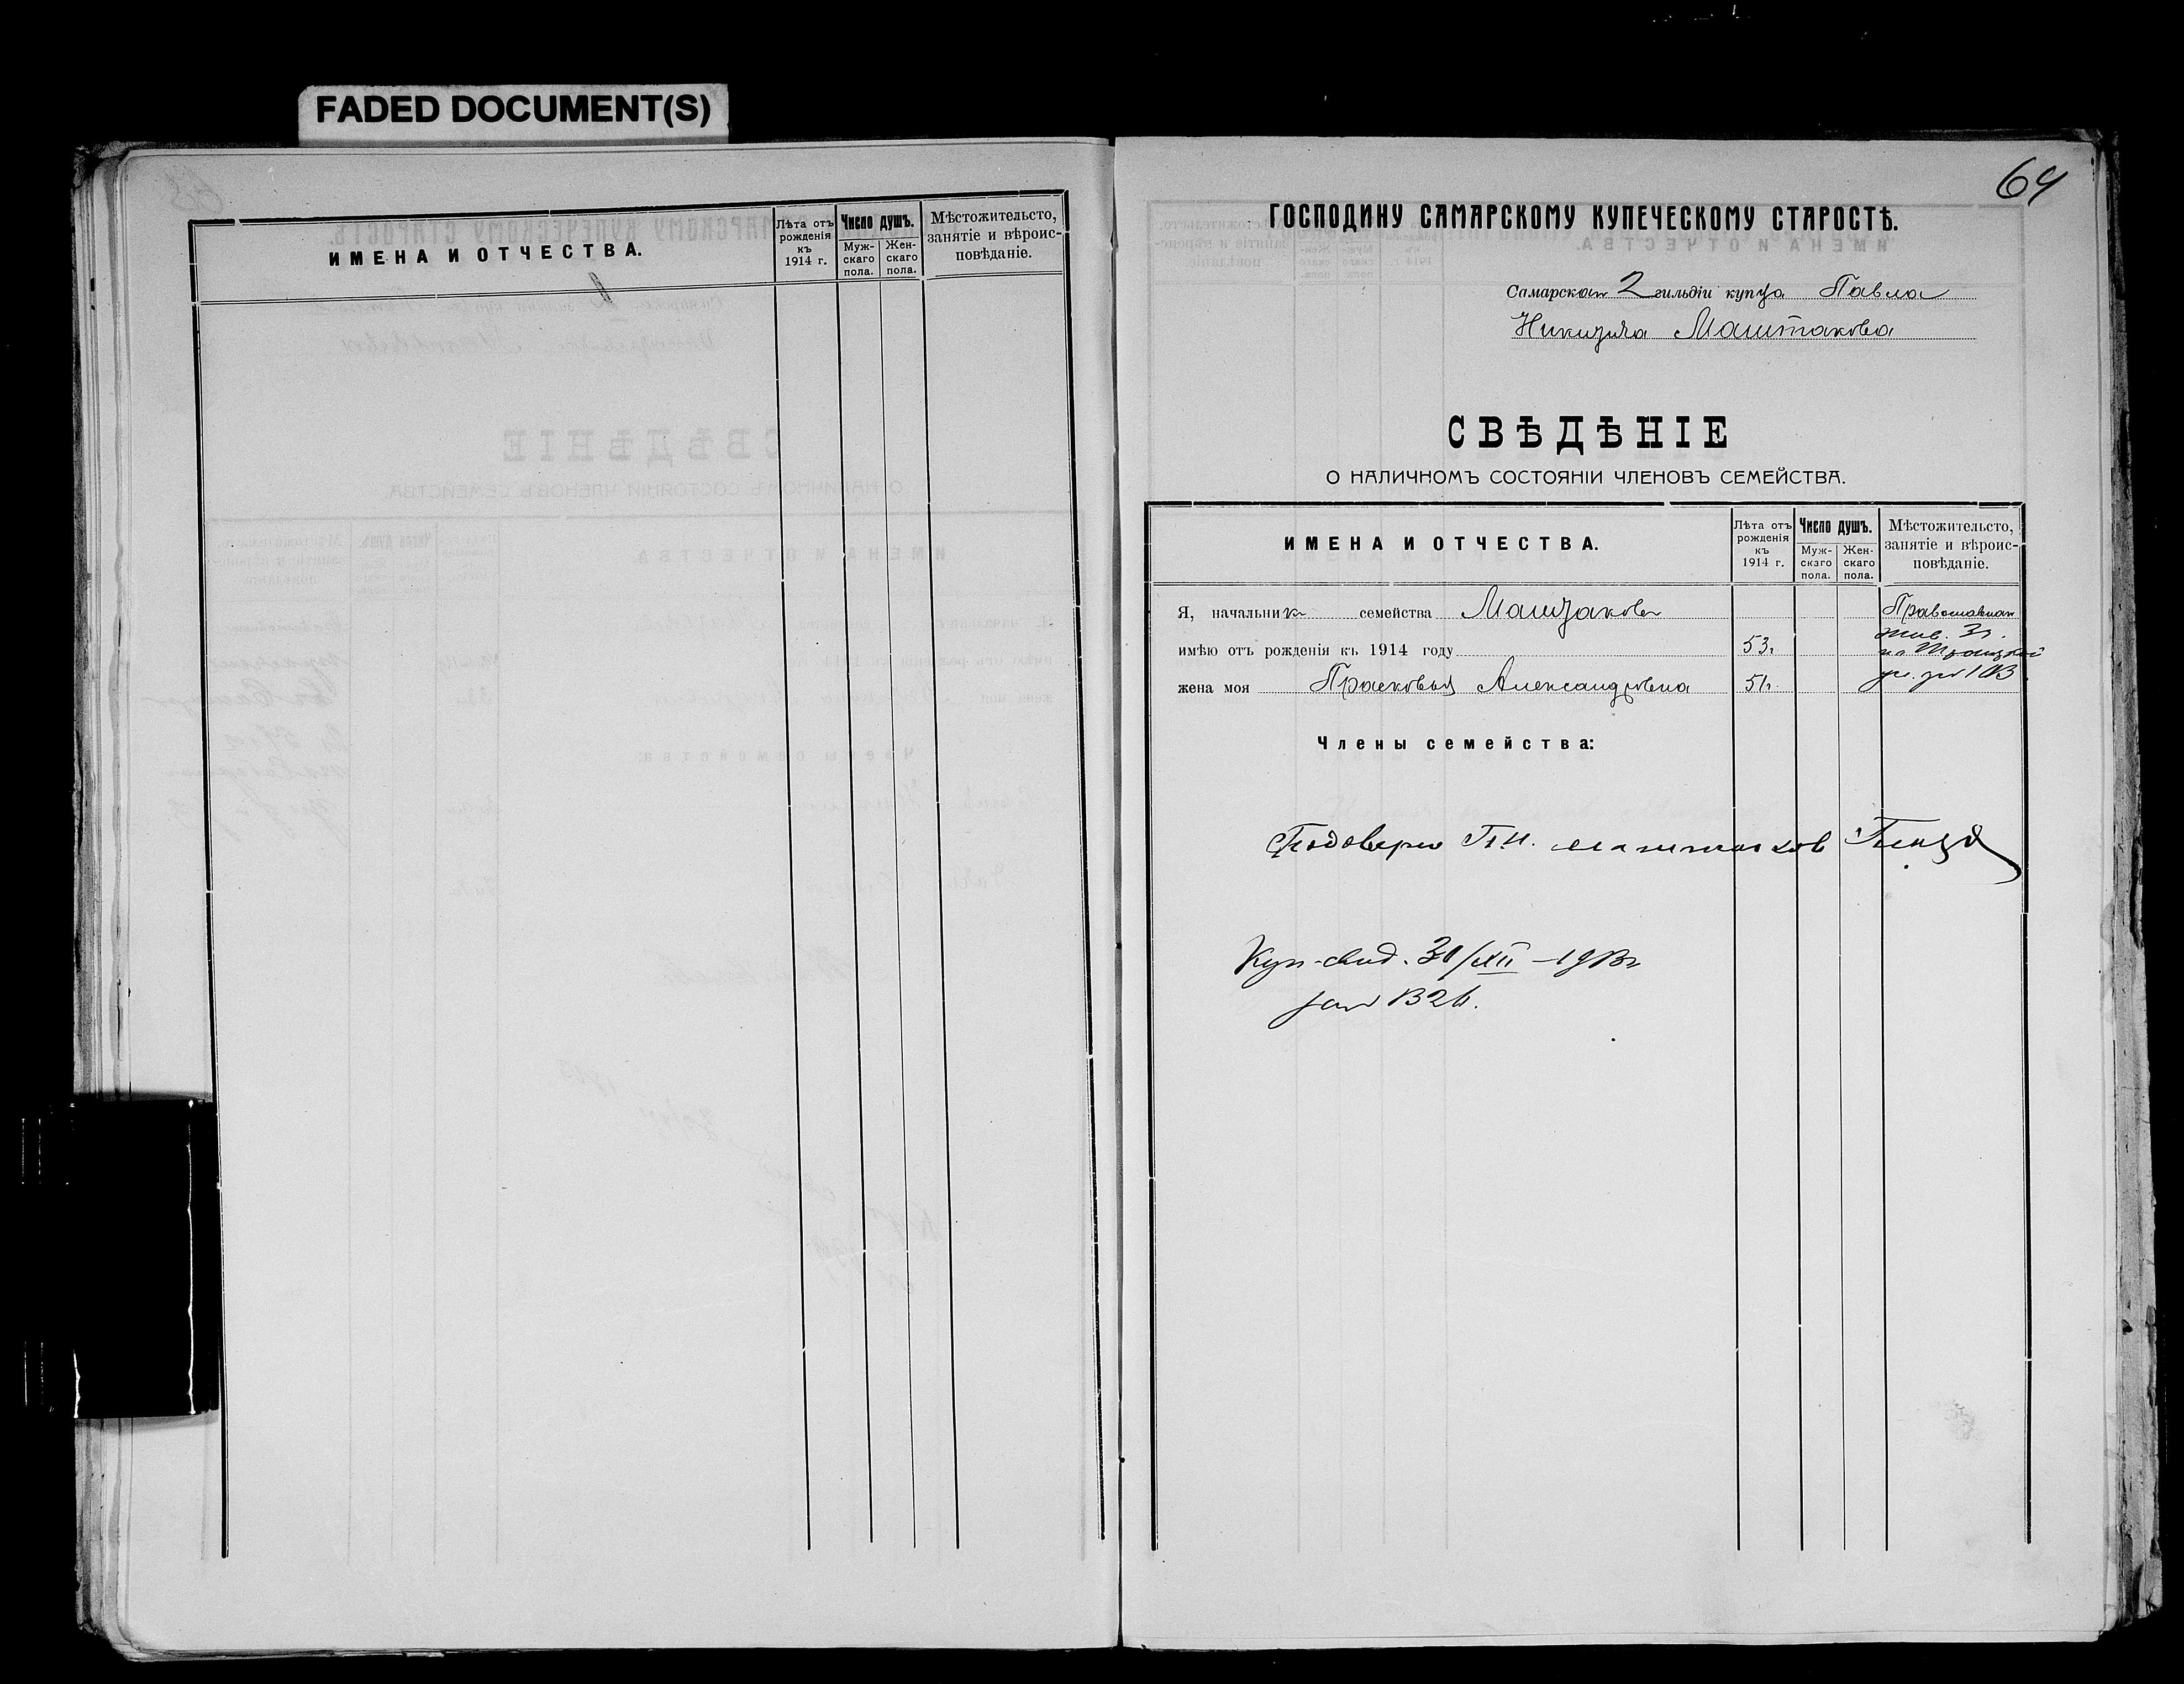 FADED DOCUMENT(S)
ИМЕНА И ОТЧЕСТВА.
Лѣта отъ рожденія къ 1914 г.
Число душъ.
Мужскаго пола.
Женскаго пола.
Мѣстожительсто, занятіе и вѣроисповѣданіе.
64
ГОСПОДИНУ САМАРСКОМУ КУПЕЧЕСКОМУ СТАРОСТѢ.
Самарскаго 2 гильдіи купца Павла
Никитича Маштакова
СВѢДѢНІЕ
О НАЛИЧНОМЪ СОСТОЯНІИ ЧЛЕНОВЪ СЕМЕЙСТВА.
ИМЕНА И ОТЧЕСТВА.
Лѣта отъ рожденія къ 1914 г.
Число душъ.
Мужскаго пола.
Женскаго пола.
Мѣстожительсто, занятіе и вѣроисповѣданіе.
Я, начальникъ семейства Маштаковъ
Православнаг
имѣю отъ рожденія къ 1914 году 53г
жив.
на Троицкой
жена моя Прасковья Александровна 51г
ул.
Члены семейства:
П.Н. Маштаков
Куп. свид. 31/XII - 1913г
за № 1326.